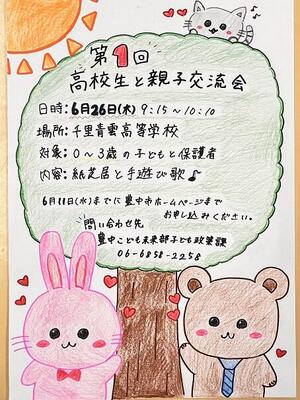 第1回
高校生と親子交流会
日時:6月26日(木) 9:15~10:10
場所:千里青雲高等学校
対象:0~3歳の子どもと保護者
内容:紙芝居と手遊び歌♪
6月11日(水)までに豊中市ホームページまで
お申し込みください。
問い合わせ先
豊中こども未来部子ども政策課
06-6858-2258